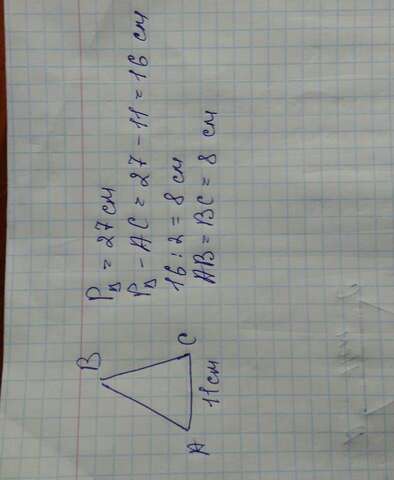 B
A
C
11 см
P△ = 27 см
P△ - AC = 27 - 11 = 16 см
16 : 2 = 8 см
AB = BC = 8 см